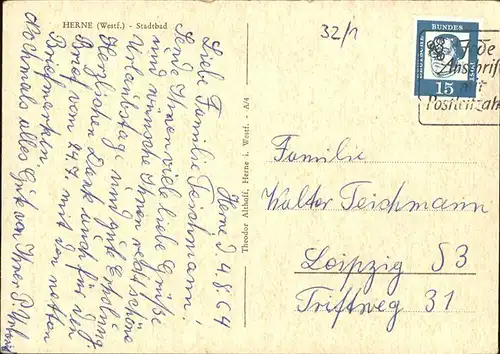 HERNE (Westf.) - Stadtbad
32/1
Herne d. 4.8.64
Liebe Familie Teichmann!
Sende Ihnen viele liebe Grüße
und wünsche Ihnen recht schöne
Urlaubstage und gute Erholung.
Herzlichen Dank auch für den
Brief vom 24.7. mit den netten
Briefmarken.
Nochmals alles Gute von Ihrer
Theodor Althoff, Herne i. Westf. - A/4
DEUTSCHE BUNDESPOST
15
Jede
Anschrift
mit
Postleitzahl
Familie
Walter Teichmann
Leipzig S3
Triftweg 31